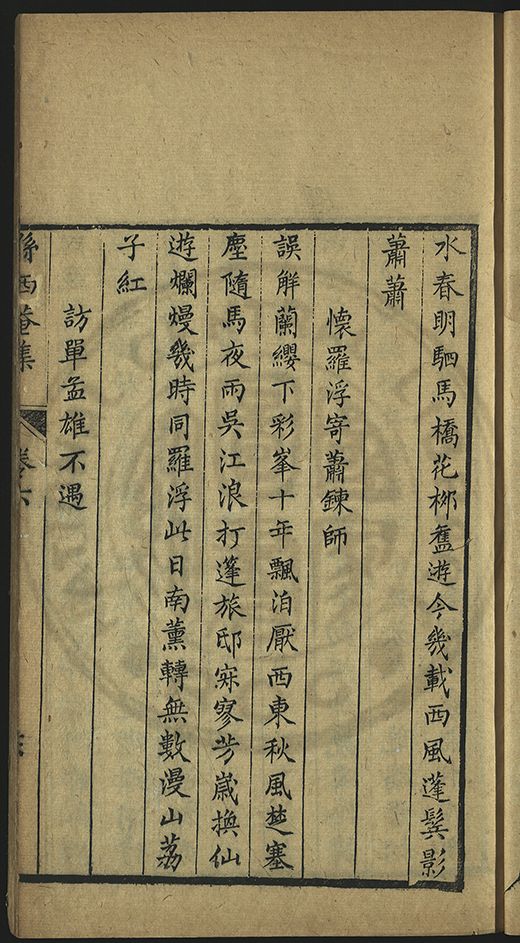 水春明駟馬橋花柳舊遊今幾載西風蓬鬂影
蕭蕭
懷羅浮寄蕭鍊師
誤解蘭纓下彩峯十年飄泊厭西東秋風楚塞
塵隨馬夜雨吳江浪打蓬旅邸寂寥芳歲換仙
遊爛熳幾時同羅浮此日南薰轉無數漫山荔
子紅
訪單孟雄不遇
西菴集
卷六